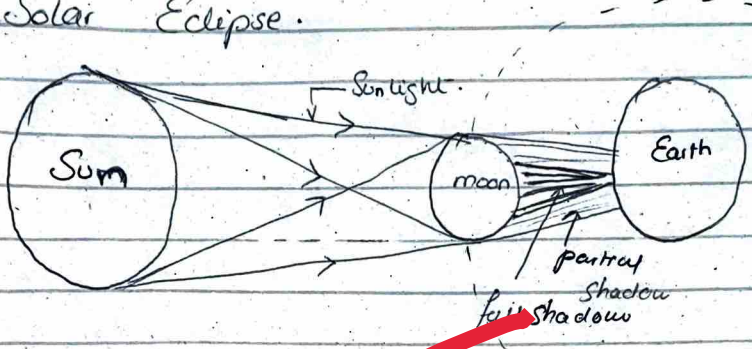 Solar Eclipse.
Sunlight.
Sum
moon
Earth
partial
shadow
shadow